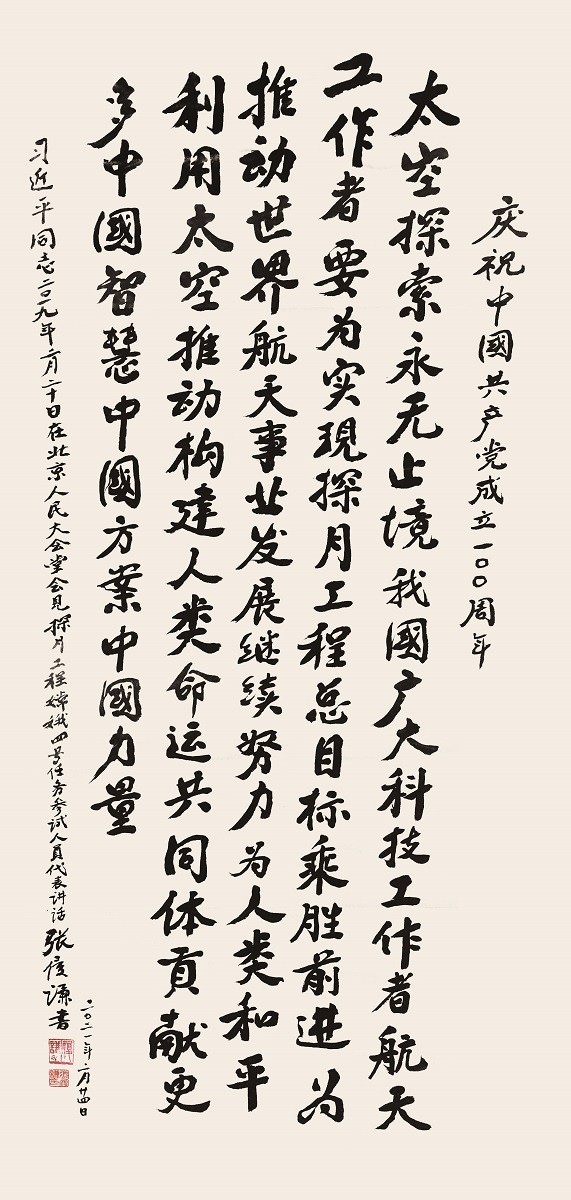 庆祝中國共产党成立一〇〇周年
太空探索永无止境我國广大科技工作者航天
工作者要为实現探月工程总目标乘胜前进为
推动世界航天事业发展继续努力为人类和平
利用太空推动构建人类命运共同体貢献更
多中國智慧中國方案中國力量
习近平同志二〇一九年二月二十日在北京人民大会堂会見探月工程嫦娥四号任务参试人員代表讲话 张谦书
二〇二一年二月廿四日